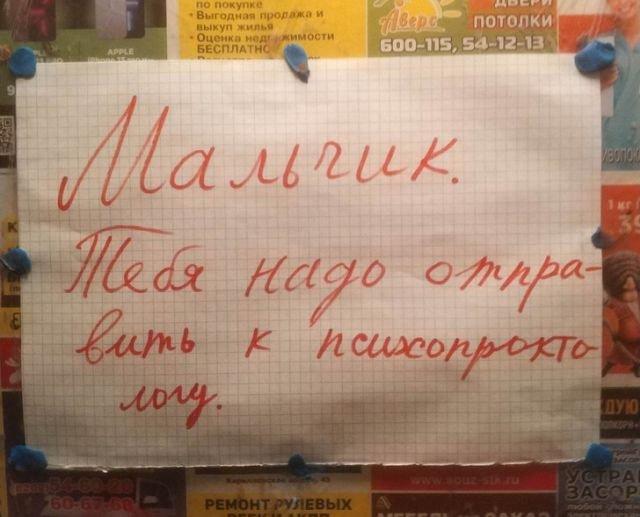 по покупке
• Выгодная продажа и
выкуп жилья
• Оценка недвижимости
БЕСПЛАТНО
APPLE
Аверс
ДВЕРИ
ПОТОЛКИ
600-115, 54-12-13
Мальчик.
Тебя надо отпра-
вить к психопрокто-
логу.
1 кг
РЕМОНТ РУЛЕВЫХ
60-67-60
УСТРА
ЗАСОР